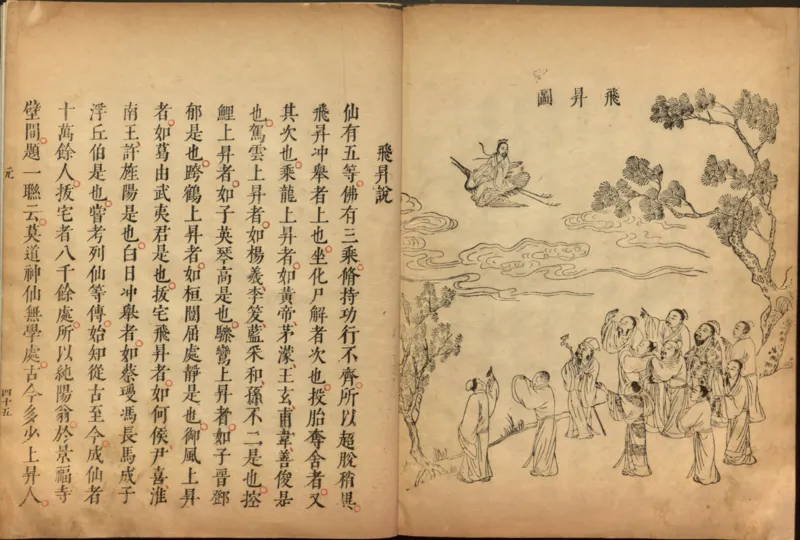 飛昇圖
飛昇說
仙有五等佛有三乘脩持功行不齊所以超脫稍異
飛昇冲舉者上也坐化尸解者次也投胎奪舍者又
其次也乘龍上昇者如黃帝茅濛王玄甫韋善俊是
也駕雲上昇者如楊羲李筌藍采和孫不二是也控
鯉上昇者如子英琴高是也驂鸞上昇者如子晉鄧
郁是也跨鶴上昇者如桓闓屈處靜是也御風上昇
者如葛由武夷君是也拔宅飛昇者如何侯尹喜淮
南王許旌陽是也白日冲舉者如蔡瓊馮長馬成子
浮丘伯是也嘗考列仙等傳始知從古至今成仙者
十萬餘人拔宅者八千餘處所以純陽翁於景福寺
壁間題一聯云莫道神仙無學處古今多少上昇人
元
四十五